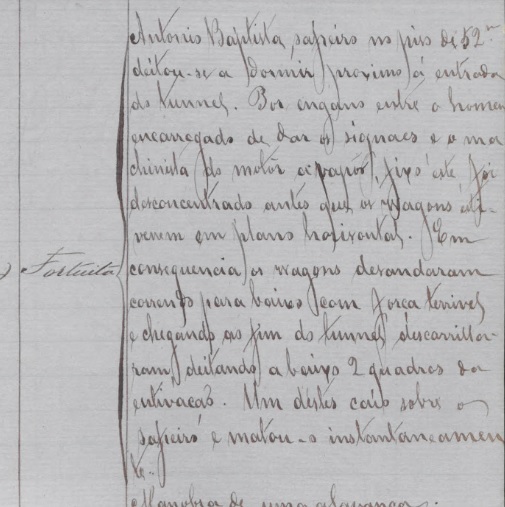 Antonio Baptista, safreiro no piso de 52m
deitou-se a dormir proximo á entrada
do tunnel. Por engano entre o homem
encarregado de dar os signaes e o ma
chinista do motor a vapor, este foi
desconcentrado antes que os wagons esti-
verem em plano horizontal. Em
Fortuito consequencia os wagons desandaram
correndo para baixo com força terrivel
e chegando ao fim do tunnel descarrilla-
ram, deitando a baixo 2 quadros da
entivação. Um d'estes caio sobre o
safreiro e matou-o instantaneamen
te.
Manobra de uma alavanca